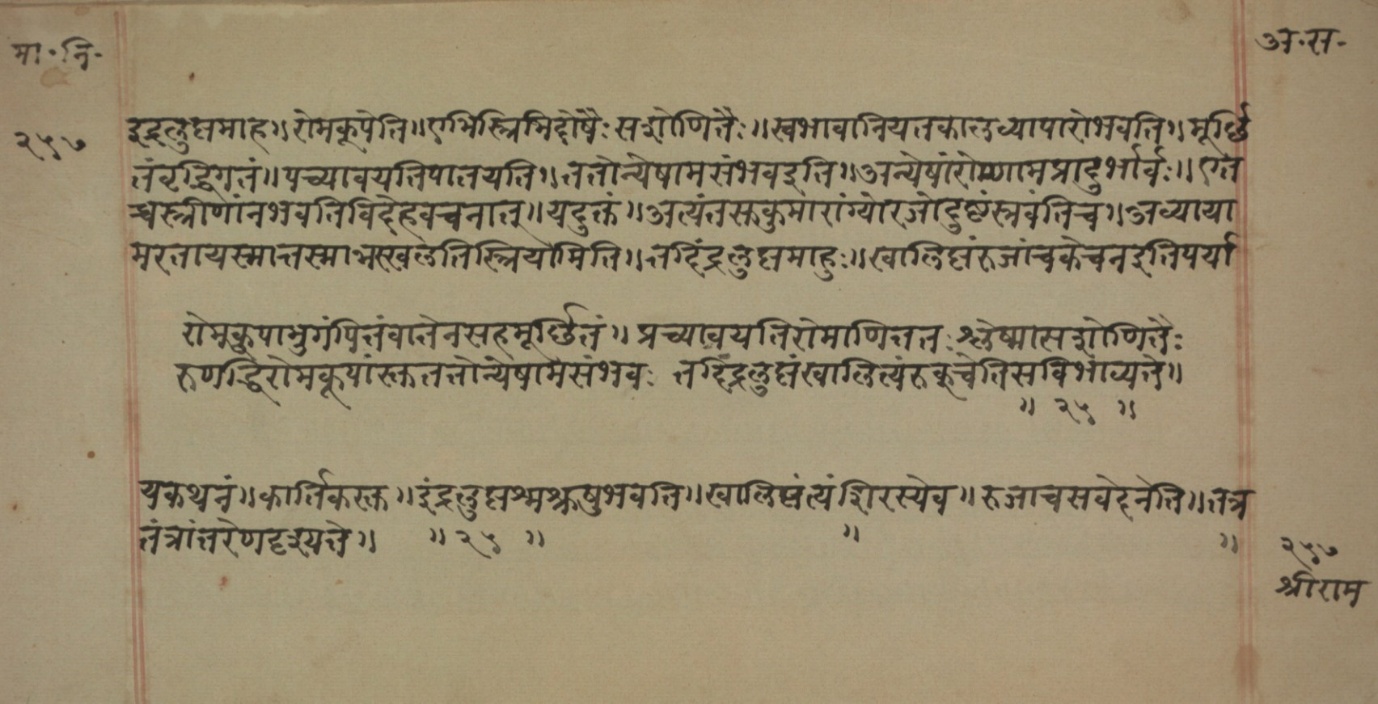 मा॰नि॰
अ॰स॰
२५७
इद्रलुप्तमाह॥रोमकूपेति॥एभिस्त्रिभिर्दोषैःसशोणितैः॥स्वभावानियतकालव्यापारोभवति॥मूर्छि
तंवृद्धिगतं॥पच्यावयतिपातयति॥ततोन्येषामसंभवइति॥अन्येषांरोम्णामप्रादुर्भार्वः॥एत
च्चस्त्रीणांनभवतिविदेहवचनात्॥यदुक्तं॥अत्यंतसुकुमारांग्योरजोदुष्टंस्त्रवंतिच॥अव्याया
मरतायस्मात्तस्मान्नस्खलतिस्त्रियामिति॥तदिंद्रलुप्तमाहुः॥खालिप्तंरुजांचकेचनइतिपर्या
रोमकूपानुगंपित्तंवातेनसहमूर्छितं॥प्रच्यावयतिरोमाणिततःश्लेष्मासशोणितैः
रुणद्धिरोमकूपांस्तुततोन्येषामसंभवः तदिंद्रलुप्तंखालित्यंरुकूचेतिसविभाव्यते॥
॥२५॥
यकथनं॥कार्तिकस्तु॥इंद्रलुप्तश्मश्रुषुभवति॥खालिप्तंत्यंशिरस्येव॥रुजाचसवदेहेनेति॥तत्र
तंत्रांतरेणदृश्यते॥ ॥२५॥ ॥ ॥
२५७
श्रीराम